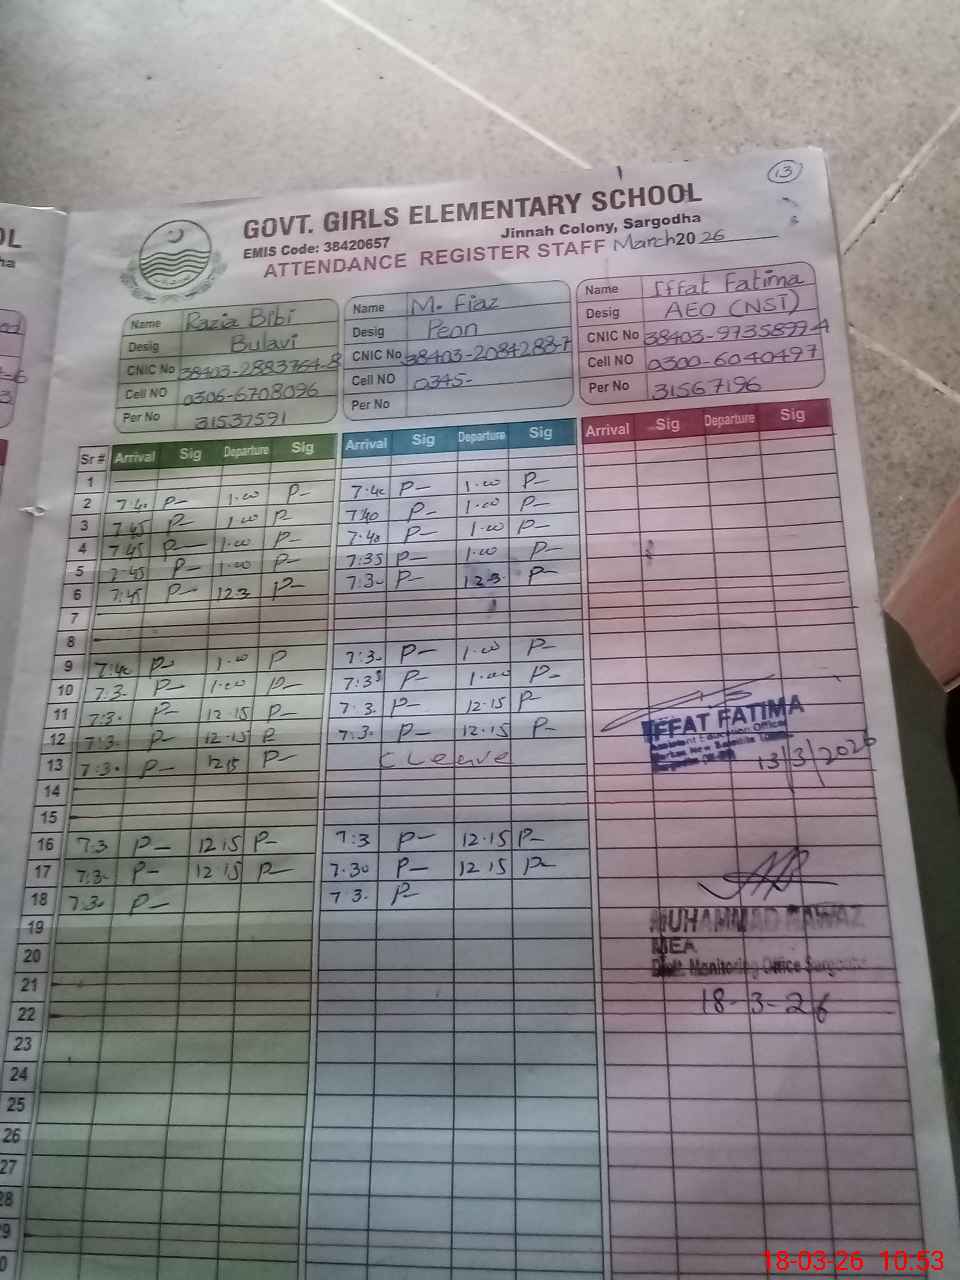 13
GOVT. GIRLS ELEMENTARY SCHOOL
EMIS Code: 38420657 Jinnah Colony, Sargodha
ATTENDANCE REGISTER STAFF March 2026
Name Razia Bibi
Desig Bulavi
CNIC No 38403-2883764-8
Cell NO 0306-6708096
Per No 31537591
Name M. Fiaz
Desig Peon
CNIC No 38403-2084283-7
Cell NO 0345-
Per No
Name Iffat Fatima
Desig AEO (NST)
CNIC No 38403-9735897-4
Cell NO 0300-6040497
Per No 31567196
Sr # Arrival Sig Departure Sig Arrival Sig Departure Sig Arrival Sig Departure Sig
1
2 7:40 P 1.00 P 7.40 P 1.00 P
3 7:45 P 1.00 P 7:40 P 1.00 P
4 7:45 P 1.00 P 7.40 P 1.00 P
5 7:45 P 1.00 P 7:35 P 1.00 P
6 7:45 P 12.3 P 7:3 P 12.3 P
7
8
9 7:40 P 1.00 P 7:3 P 1.00 P
10 7:3 P 1.00 P 7:35 P 1.00 P
11 7:3 P 12.15 P 7:3 P 12.15 P
12 7:3 P 12.15 P 7:3 P 12.15 P
13 7:3 P 12 15 P C Leave
14
15
16 7.3 P 12 15 P 7:3 P 12.15 P
17 7:3 P 12 15 P 7.30 P 12 15 P
18 7:30 P 7 3 P
19
20
21
22
23
24
25
26
27
28
IFFAT FATIMA
Assistant Education Officer
13/3/2026
MUHAMMAD NAWAZ
MEA
Distt. Monitoring Office Sargodha
18-3-26
18-03-26 10:53